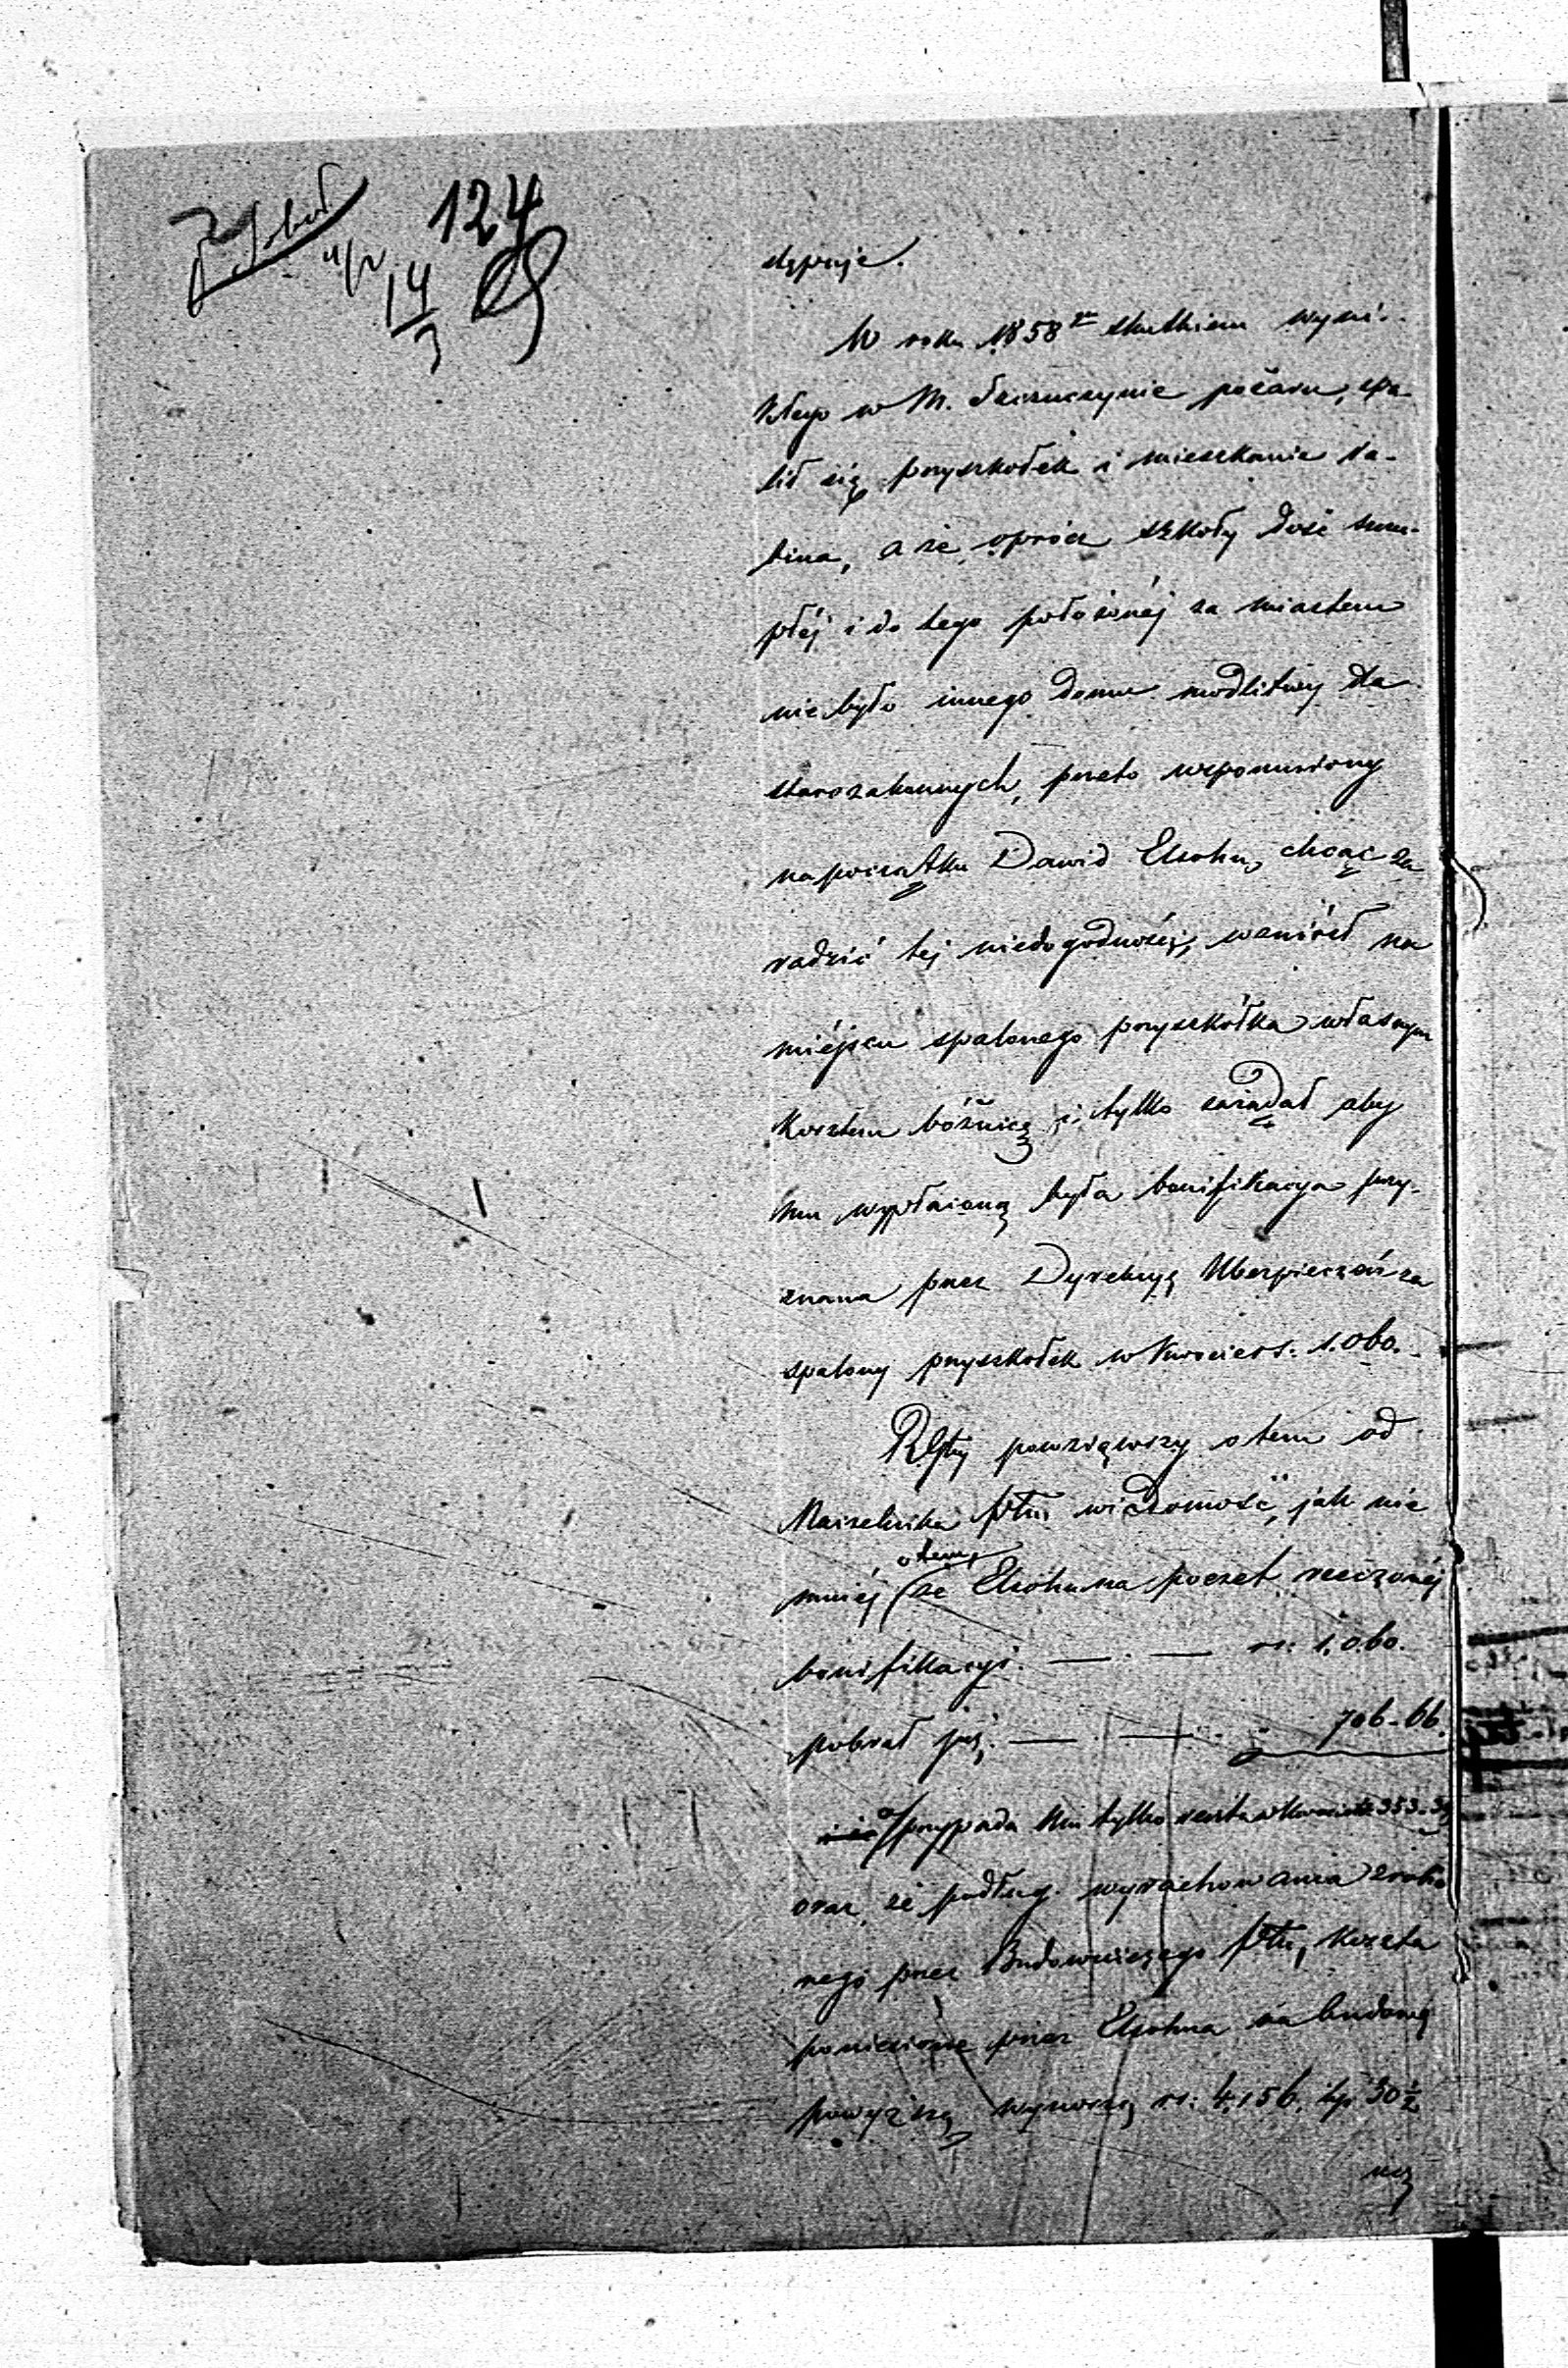 124
14
3
stępuje.
W roku 1858 skutkiem wyni-
kłego w M. Szczuczynie pożaru, spa
lił się przyszkołek i mieszkanie ra-
bina, a że oprócz szkoły dość szczu-
płéj i do tego położonéj za miastem
nie było innego domu modlitwy dla
starozakonnych, przeto wspomniony
na początku Dawid Elsohn, chcąc za
radzić tej niedogodności, wzniósł na
miéjscu spalonego przyszkółka własnym
kosztem bóżnicę i tylko zażądał aby
mu wypłaconą była bonifikacya przy-
znana przez Dyrekcyą Ubezpieczeń za
spalony przyszkołek w kwocie rs: 1.060.
powziąwszy o tem od
Naczelnika Pttu wiadomość, jak nie
mniéj o tem, że Elsohn na poczet rzeczonéj
bonifikacyi. — . — rs: 1.060.
pobrał już. — . — . „ 706-66.
a przypada mu tylko reszta w kwocie 353-34
oraz, że podług wyrachowania zrobio
nego przez Budowniczego Pttu, koszta
poniesione przez Elsohna na budowę
powyższą wynoszą rs: 4,156. kp 30½